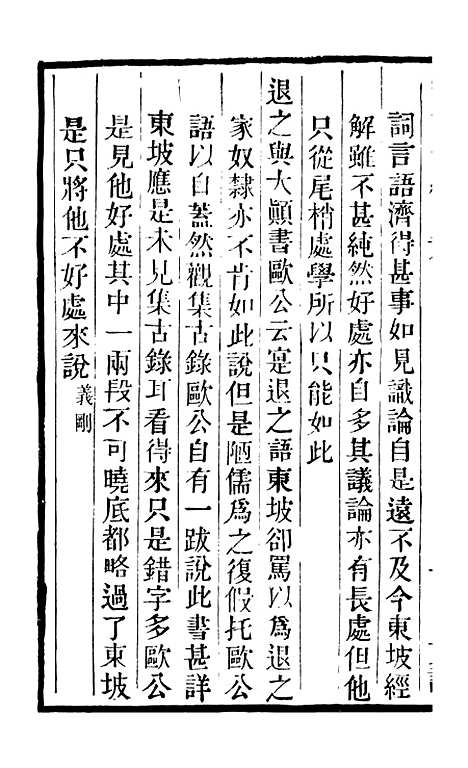 詞言語濟得甚事如見識論自是遠不及今東坡經
解雖不甚純然好處亦自多其議論亦有長處但他
只從尾梢處學所以只能如此
退之與大顚書歐公云寔退之語東坡卻罵以爲退之
家奴隸亦不肯如此說但是陋儒爲之復假托歐公
語以自蓋然觀集古錄歐公自有一跋說此書甚詳
東坡應是未見集古錄耳看得來只是錯字多歐公
是見他好處其中一兩段不可曉底都略過了東坡
是只將他不好處來說義剛